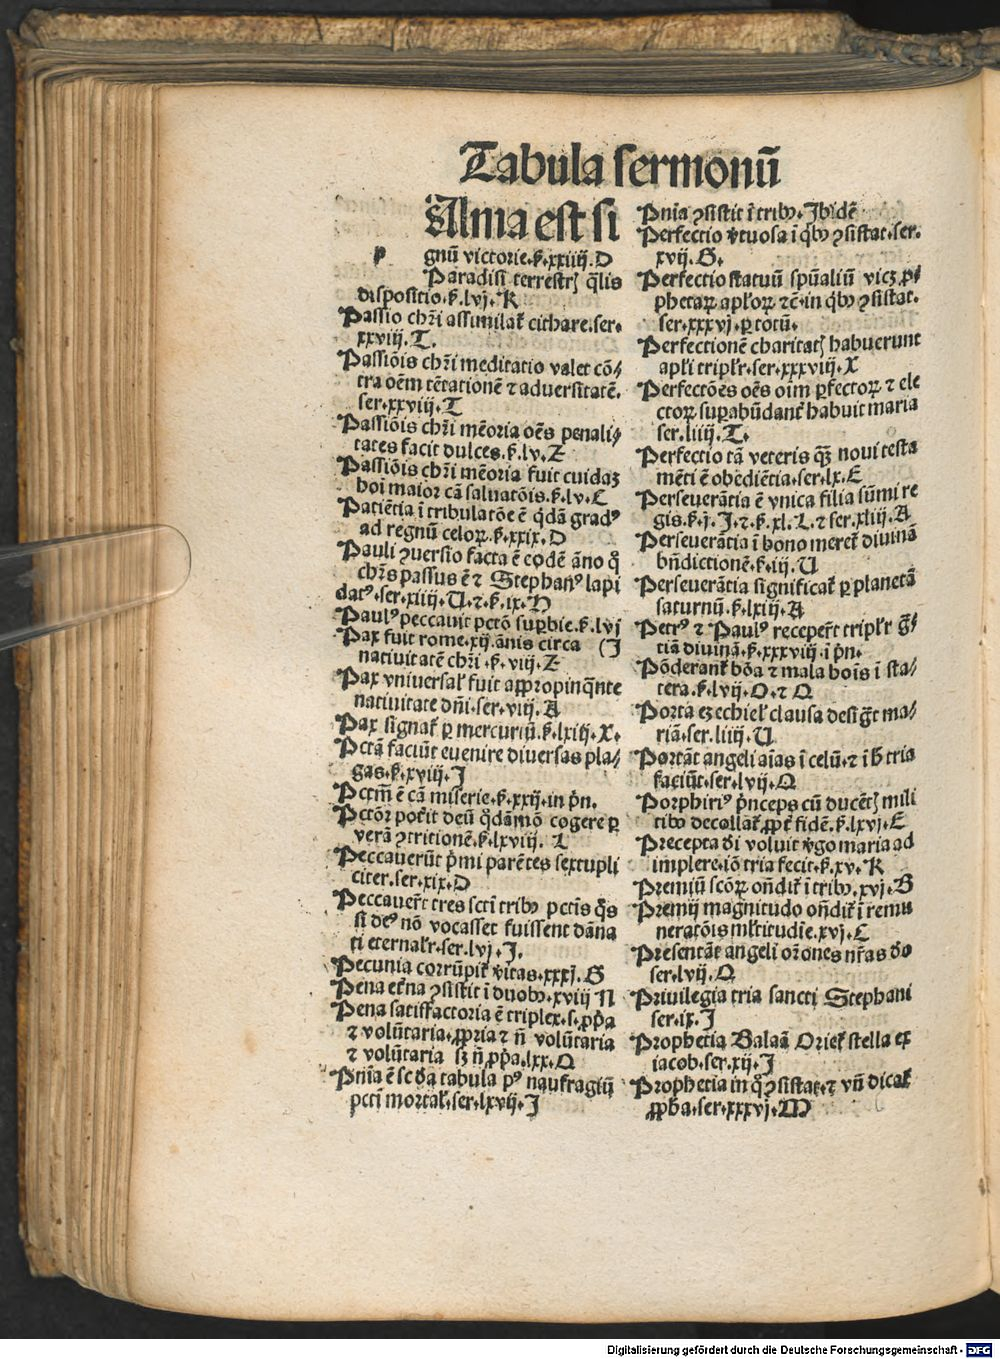 Tabula sermonū
Alma est si
p gnū victorie.ẜ.xxiiij.D
Paradisi terrestrꝭ q̄lis
dispositio.ẜ.lvj.K
Passio chr̄i assimilat᷑ cithare.ser.
xxviij.T.
Passiōis chr̄i meditatio valet cō⸗
tra oēm tētationē ⁊ aduersitatē.
ser.xxviij.T
Passiōis chr̄i mēoria oēs penali⸗
tates facit dulces.ẜ.lv.Z
Passiōis chr̄i mēoria fuit cuidaꝫ
hoi maior cā saluatōis.ẜ.lv.C
Patiētia ī tribulatōe ē q̄dā gradꝰ
ad regnū celoꝝ.ẜ.xxix.D
Pauli ꝯuersio facta ē eodē āno q̊
chr̄s passus ē ⁊ Stephanꝰ lapi
datꝰ.ser.xiiij.U.⁊.ẜ.ix.H
Paulꝰ peccauit pctō suꝑbie.ẜ.lvj
Pax fuit rome.xij.ānis circa (J
natiuitatē chr̄i.ẜ.viij.Z
Pax vniuersal᷑ fuit aꝓpropinq̄nte
natiuitate dn̄i.ser.viij.A
Pax signat᷑ ꝑ mercuriū.ẜ.lxiij.X.
Pctā faciūt euenire diuersas pla⸗
gas.ẜ.xviij.J
Pctm̄ ē cā miserie.ẜ.xxij.in pͥn.
Pctōr pot᷑it deū q̄dāmō cogere ꝑ
verā ꝯtritionē.ẜ.lxviij. L
Peccauerūt pͥmi parētes sextupli
citer.ser.xix.D
Peccauer᷑t tres scti ī tribꝰ pctis q̄s
si deꝰ nō vocasset fuissent dāna
ti eternal᷑r.ser.lvj.J.
Pecunia corrūpit᷑ v̓itas.xxxj.G
Pena et᷑na ꝯsistit ī duobꝰ.xviij N
Pena satisfactoria ē triplex.s.ꝓpͥa
⁊ volūtaria.ꝓpria ⁊ n̄ volūtaria
⁊ volūtaria sꝫ n̄ ꝓpͥa.lxx.O
Pn̄ia ē scd̓a tabula pꝰ naufragiū
pcti mortal᷑.ser.lxvij.J
Pn̄ia ꝯsistit ī tribꝰ.Jbidē
Perfectio v̓tuosa ī q̇bꝰ ꝯsistat.ser.
xvij.G.
Perfectio statuū spūaliū vicꝫ ꝓ⸗
phetaꝝ apl᷑oꝝ ⁊ē.in q̇bꝰ ꝯsistat.
ser.xxxvj.ꝑ totū.
Perfectionē charitatꝭ habuerunt
apl᷑i tripl᷑r.ser.xxxviij.X
Perfectōes oēs oīm ꝑfectoꝝ ⁊ ele
ctoꝝ suꝑabūdant᷑ habuit maria
ser.liiij.T.
Perfectio tā veteris q̄ꝫ noui testa
mēti ē obediētia.ser.lx.E
Perseuerātia ē vnica filia sūmi re
gis.ẜ.j.J.⁊.ẜ.xl.L.⁊ ser.xliij.A
Perseuerātia ī bono meret᷑ diuinā
bn̄dictionē.ẜ.iij.U
Perseuerātia significat᷑ ꝑ planetā
saturnū.ẜ.lxiij.A
Petrꝰ ⁊ Paulꝰ recepert᷑ tripl᷑r gr̄⸗
tiā diuinā.ẜ.xxxviij.ī pͥn.
Pōderant᷑ bōa ⁊ mala hoīs ī sta⸗
tera.ẜ.lvij.O.⁊ Q
Porta ezechiel᷑ clausa desigᷓt ma⸗
riā.ser.liiij.U
Portāt angeli aīas ī celū.⁊ ī h̄ tria
faciūt.ser.lvij.Q
Porphiriꝰ pͥnceps cū ducētꝭ mili
tibꝰ decollat᷑.ꝓpt᷑ fidē.ẜ.lxvj.E
Precepta d̓i voluit v̓go maria ad
implere.iō tria fecit.ẜ.xv.K
Premiū scōꝝ on̄dit᷑ ī tribꝰ.xvj.B
Premij magnitudo on̄dit᷑ ī remu
neratōis ml᷑titudīe.xvj.C
Presentāt angeli or̄ones nr̄as do
ser.lvij.Q
Priuilegia tria sancti Stephani
ser.ix.J
Prophetia Balaā Oriet᷑ stella ex
iacob.ser.xij.J
Prophetia in q̊ ꝯsistat.⁊ vn̄ dicat᷑
ꝓph̄a.ser.xxxvj.M
Digitalisierung gefördert durch die Deutsche Forschungsgemeinschaft - DFG